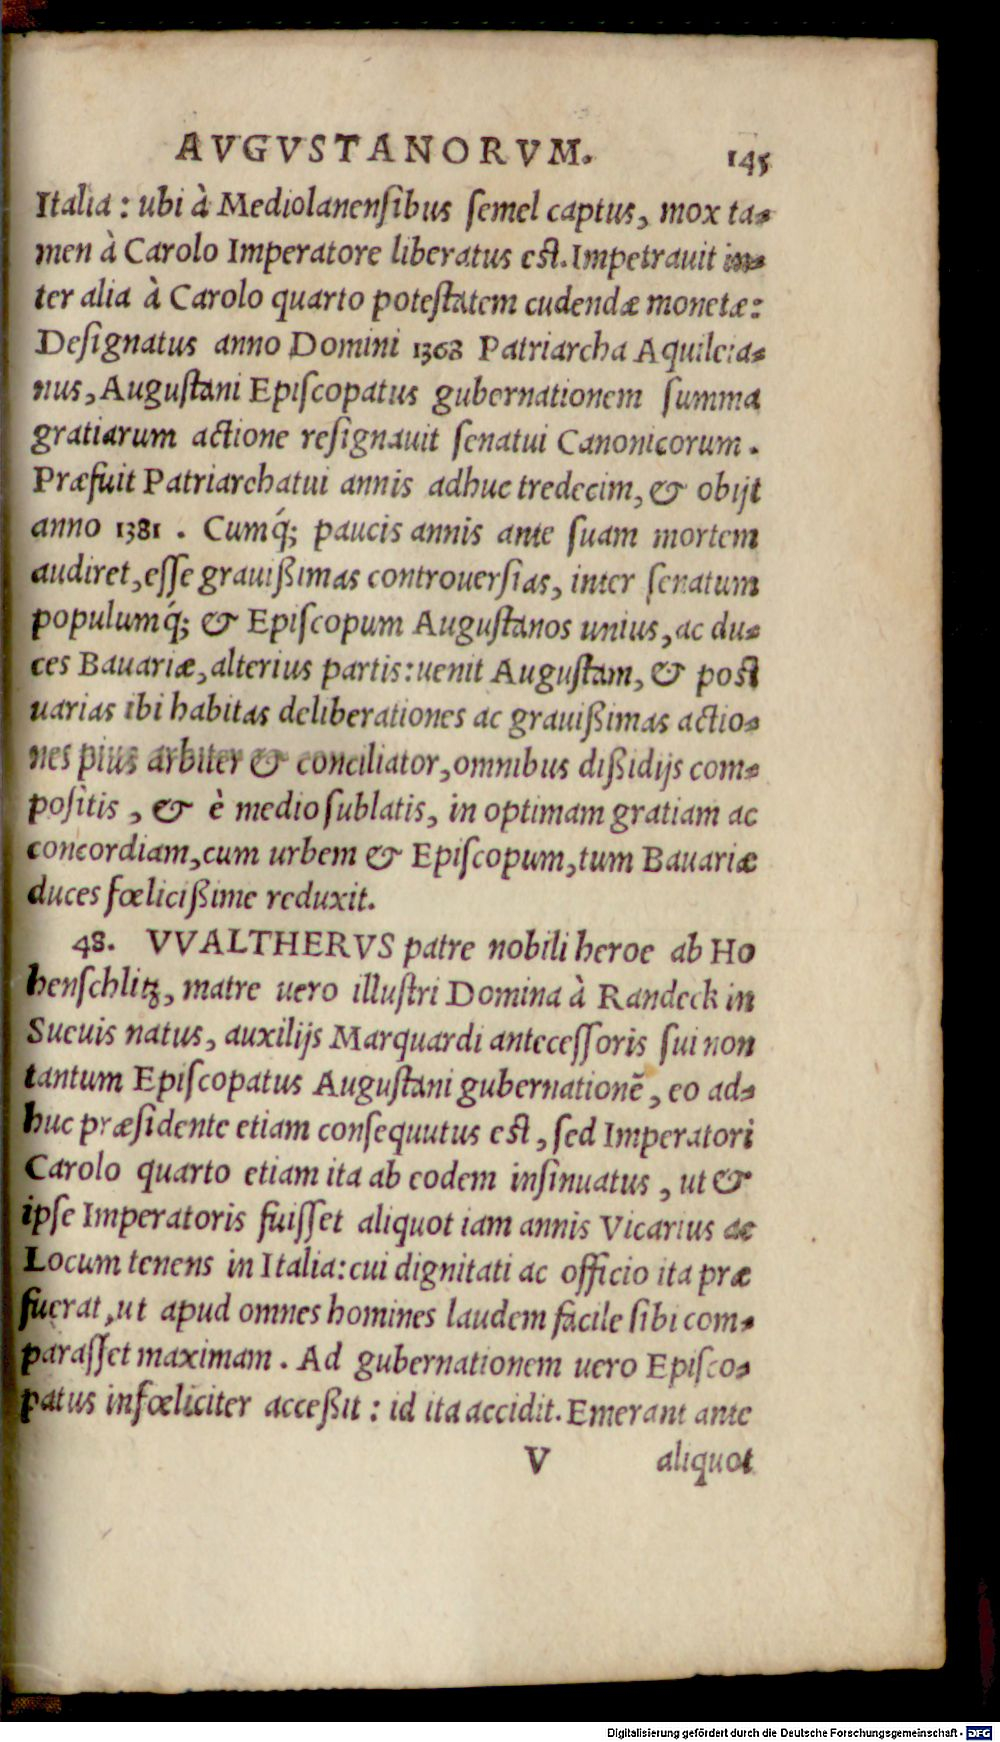 AVGVSTANORVM. 145
Italia: ubi à Mediolanensibus semel captus, mox ta-
men à Carolo Imperatore liberatus est. Impetrauit in-
ter alia à Carolo quarto potestatem cudendæ monetæ:
Designatus anno Domini 1368 Patriarcha Aquileia-
nus, Augustani Episcopatus gubernationem summa
gratiarum actione resignauit senatui Canonicorum.
Præfuit Patriarchatui annis adhuc tredecim, & obijt
anno 1381. Cumq́; paucis annis ante suam mortem
audiret, esse grauißimas controuersias, inter senatum
populumq́; & Episcopum Augustanos unius, ac du-
ces Bauariæ, alterius partis: uenit Augustam, & post
uarias ibi habitas deliberationes ac grauißimas actio-
nes pius arbiter & conciliator, omnibus dißidijs com-
positis, & è medio sublatis, in optimam gratiam ac
concordiam, cum urbem & Episcopum, tum Bauariæ
duces fœlicißime reduxit.
48. VVALTHERVS patre nobili heroe ab Ho
henschlitz, matre uero illustri Domina à Randeck in
Sueuis natus, auxilijs Marquardi antecessoris sui non
tantum Episcopatus Augustani gubernationẽ, eo ad-
huc præsidente etiam consequutus est, sed Imperatori
Carolo quarto etiam ita ab eodem insinuatus, ut &
ipse Imperatoris fuisset aliquot iam annis Vicarius ac
Locum tenens in Italia: cui dignitati ac officio ita præ
fuerat, ut apud omnes homines laudem facile sibi com-
parasset maximam. Ad gubernationem uero Episco-
patus infœliciter acceßit: id ita accidit. Emerant ante
V aliquot
Digitalisierung gefördert durch die Deutsche Forschungsgemeinschaft - DFG